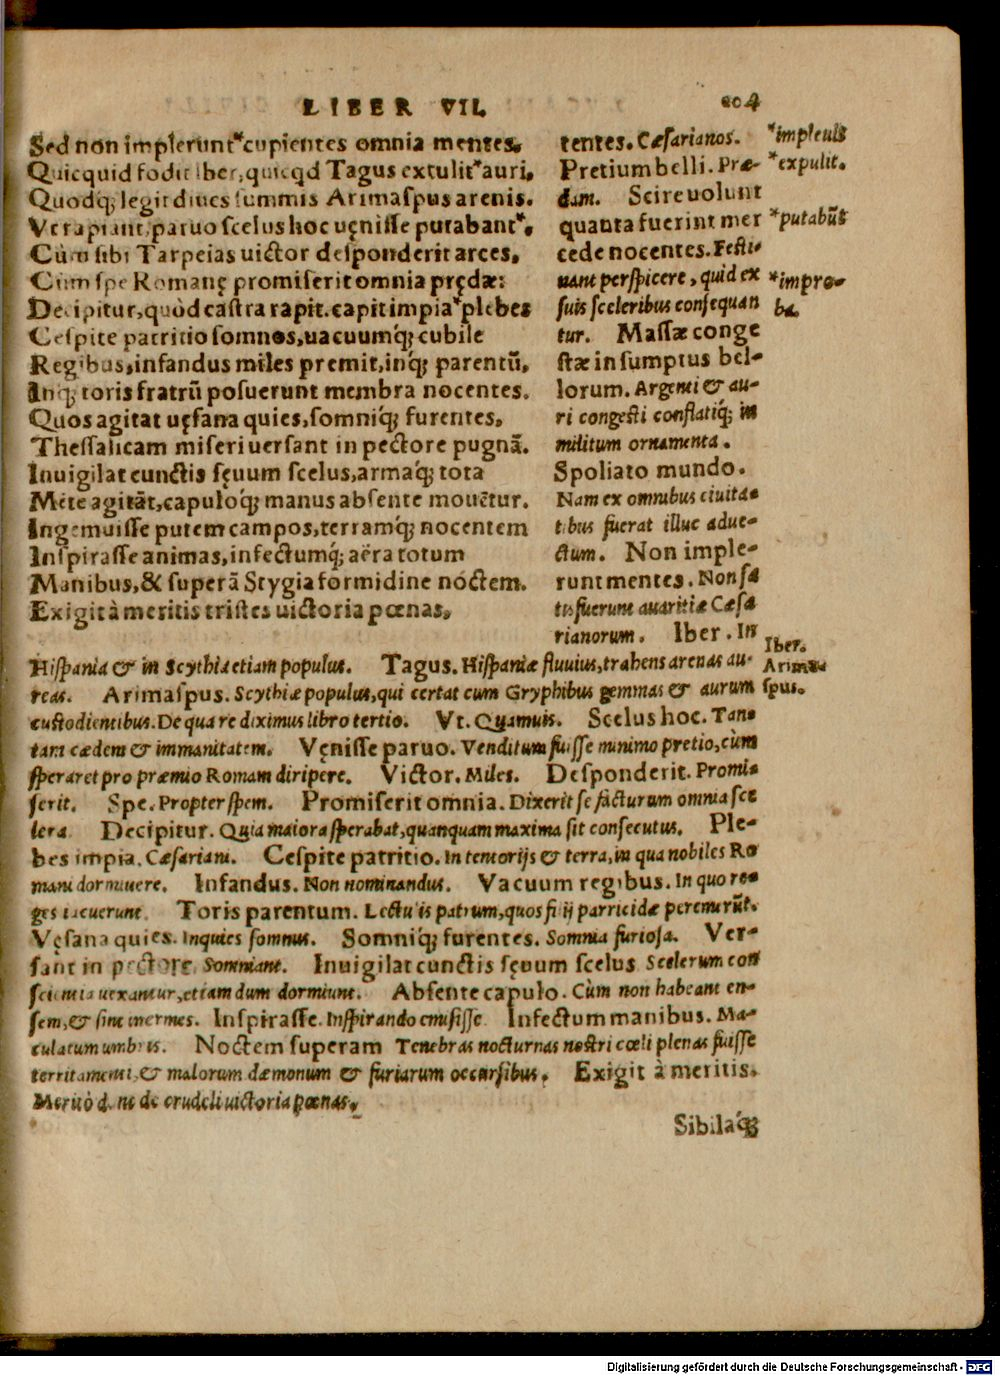 LIBER VII. 204
Sed non implerunt*cupientes omnia mentes.
Quicquid fodit Iber, quicqd Tagus extulit*auri,
Quodq; legit diues summis Arimaspus arenis.
Vt rapiant, paruo scelus hoc uęnisse putabant*,
Cùm sibi Tarpeias uictor desponderit arces,
Cùm spe Romanę promiserit omnia prędæ:
Decipitur, quòd castra rapit. capit impia*plebes
Cespite patritio somnos, uacuumq́; cubile
Regibus, infandus miles premit, inq́; parentũ,
Inq́; toris fratrũ posuerunt membra nocentes.
Quos agitat uęsana quies, somniq́; furentes,
Thessalicam miseri uersant in pectore pugnã.
Inuigilat cunctis sęuum scelus, armaq́; tota
Mẽte agitãt, capuloq́; manus absente mouẽtur.
Ingemuisse putem campos, terramq́; nocentem
Inspirasse animas, infectumq́; aëra totum
Manibus, & superã Stygia formidine noctem.
Exigit à meritis tristes uictoria pœnas,
tentes. Cæsarianos.
Pretium belli. Præ-
dam. Scire uolunt
quanta fuerint mer
cede nocentes. Festi-
nant perspicere, quid ex
suis sceleribus consequan
tur. Massæ conge
stæ in sumptus bel-
lorum. Argenti & au-
ri congesti conflatiq́; in
militum ornamenta.
Spoliato mundo.
Nam ex omnibus ciuita-
tibus fuerat illuc adue-
ctum. Non imple-
runt mentes. Non sa
tis fuerunt auaritiæ Cæsa
rianorum. Iber. In
*impleuit
*expulit.
*putabũt
*impro-
ba.
Iber.
Arima-
spus.
Hispania & in Scythia etiam populus. Tagus. Hispaniæ fluuius, trahens arenas au-
reas. Arimaspus. Scythiæ populus, qui certat cum Gryphibus gemmas & aurum
custodientibus. De qua re diximus libro tertio. Vt. Quamuis. Scelus hoc. Tan-
tam cædem & immanitatem. Vęnisse paruo. Venditum fuisse minimo pretio, cùm
speraret pro præmio Romam diripere. Victor. Miles. Desponderit. Promi-
serit. Spe. Propter spem. Promiserit omnia. Dixerit se facturum omnia sce
lera. Decipitur. Quia maiora sperabat, quanquam maxima sit consecutus. Ple-
bes impia. Cæsariani. Cespite patritio. In tentorijs & terra, in qua nobiles Ro
mani dormiuere. Infandus. Non nominandus. Vacuum regibus. In quo re-
ges iacuerunt. Toris parentum. Lectulis patrum, quos filij parricidæ peremerũt.
Vęsana quies. Inquies somnus. Somniq́; furentes. Somnia furiosa. Ver-
sant in pectore. Somniant. Inuigilat cunctis sęuum scelus. Scelerum con
scientia uexantur, etiam dum dormiunt. Absente capulo. Cùm non habeant en-
sem, & sint inermes. Inspirasse. Inspirando emisisse. Infectum manibus. Ma-
culatum umbris. Noctem superam. Tenebras nocturnas nostri cœli plenas fuisse
territamenti, & malorum dæmonum & furiarum occursibus. Exigit à meritis.
Meritò de crudeli uictoria pœnas,
Sibilaq́;
Digitalisierung gefördert durch die Deutsche Forschungsgemeinschaft - DFG